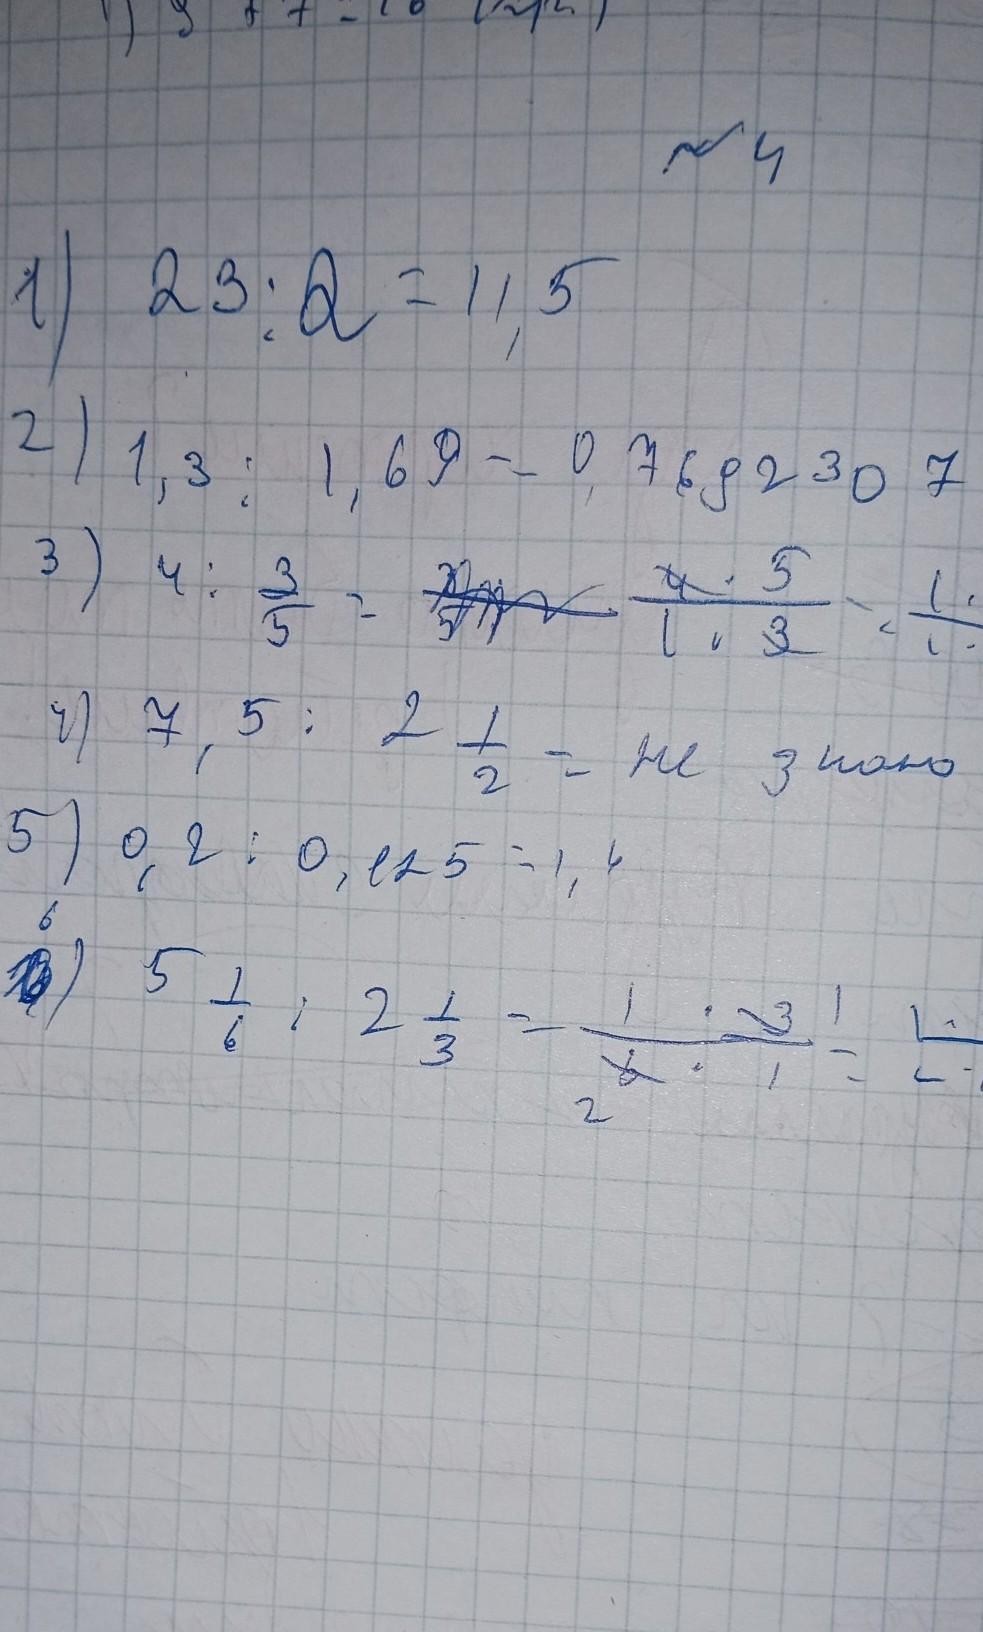 № 4
1) 23 : 2 = 11,5
2) 1,3 : 1,69 = 0,7692307
3) 4 : 3/5 = 4 · 5 / 1 · 3 = 1 · / 1 ·
4) 7,5 : 2 1/2 = не знаю
5) 0,2 : 0,125 = 1,
6) 5 1/6 : 2 1/3 = 1 · 3 1 / 6 · 1 2 =